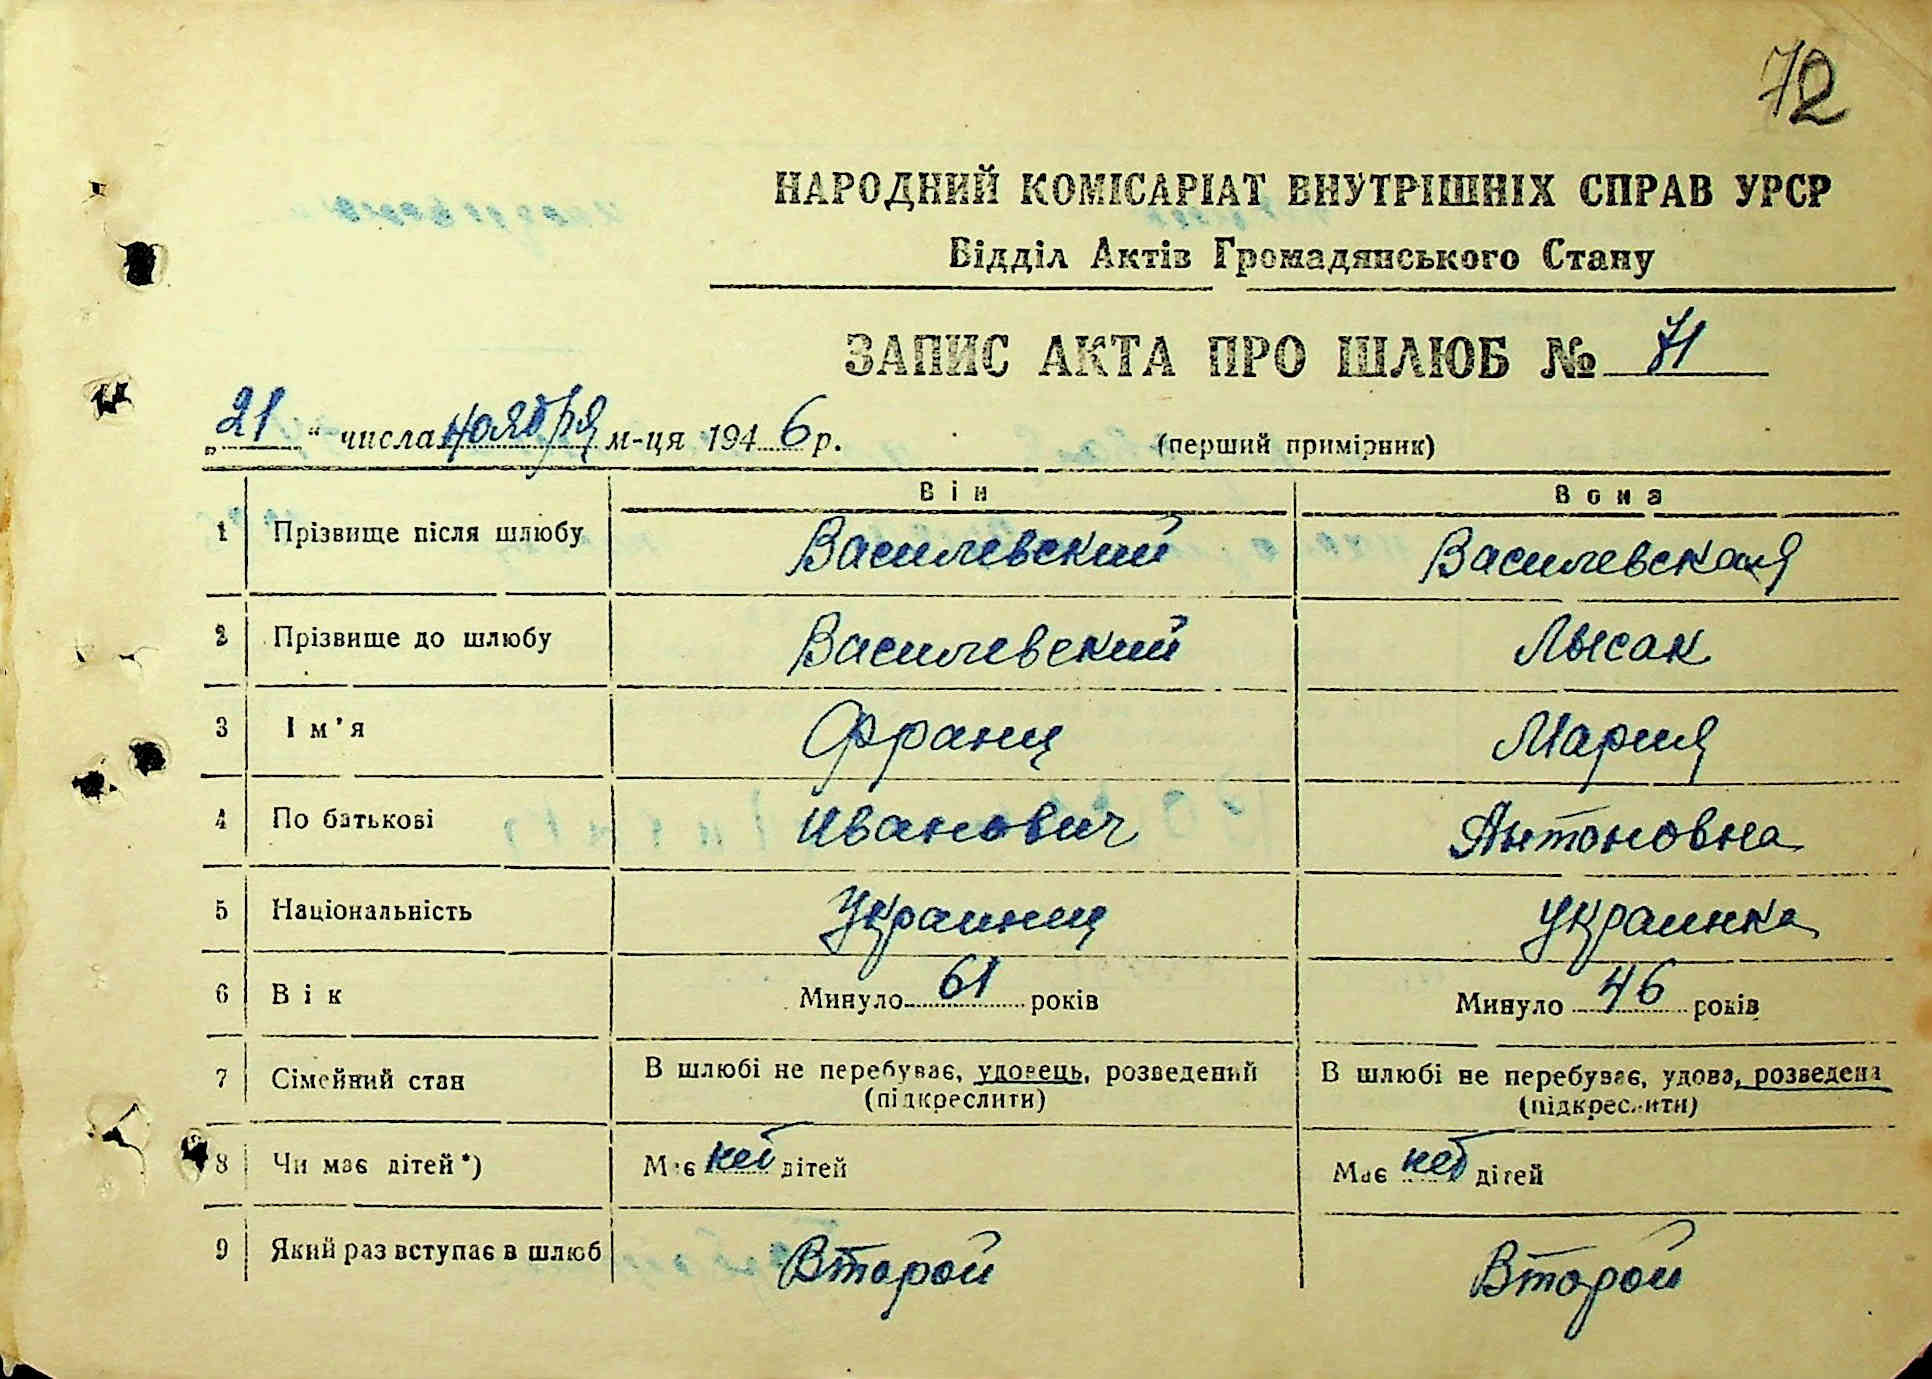 72
НАРОДНИЙ КОМІСАРІАТ ВНУТРІШНІХ СПРАВ УРСР
Відділ Актів Громадянського Стану
ЗАПИС АКТА ПРО ШЛЮБ № 71
„21“ числа ноября м-ця 1946 р. (перший примірник)
Він Вона
1 Прізвище після шлюбу Василевский Василевская
2 Прізвище до шлюбу Василевский Лысак
3 Ім'я Франц Мария
4 По батькові Иванович Антоновна
5 Національність Украинец Украинка
6 Вік Минуло 61 років Минуло 46 років
7 Сімейний стан В шлюбі не перебуває, удовець, розведений В шлюбі не перебуває, удова, розведена
(підкреслити) (підкреслити)
8 Чи має дітей*) Має нет дітей Має нет дітей
9 Який раз вступає в шлюб Второй Второй